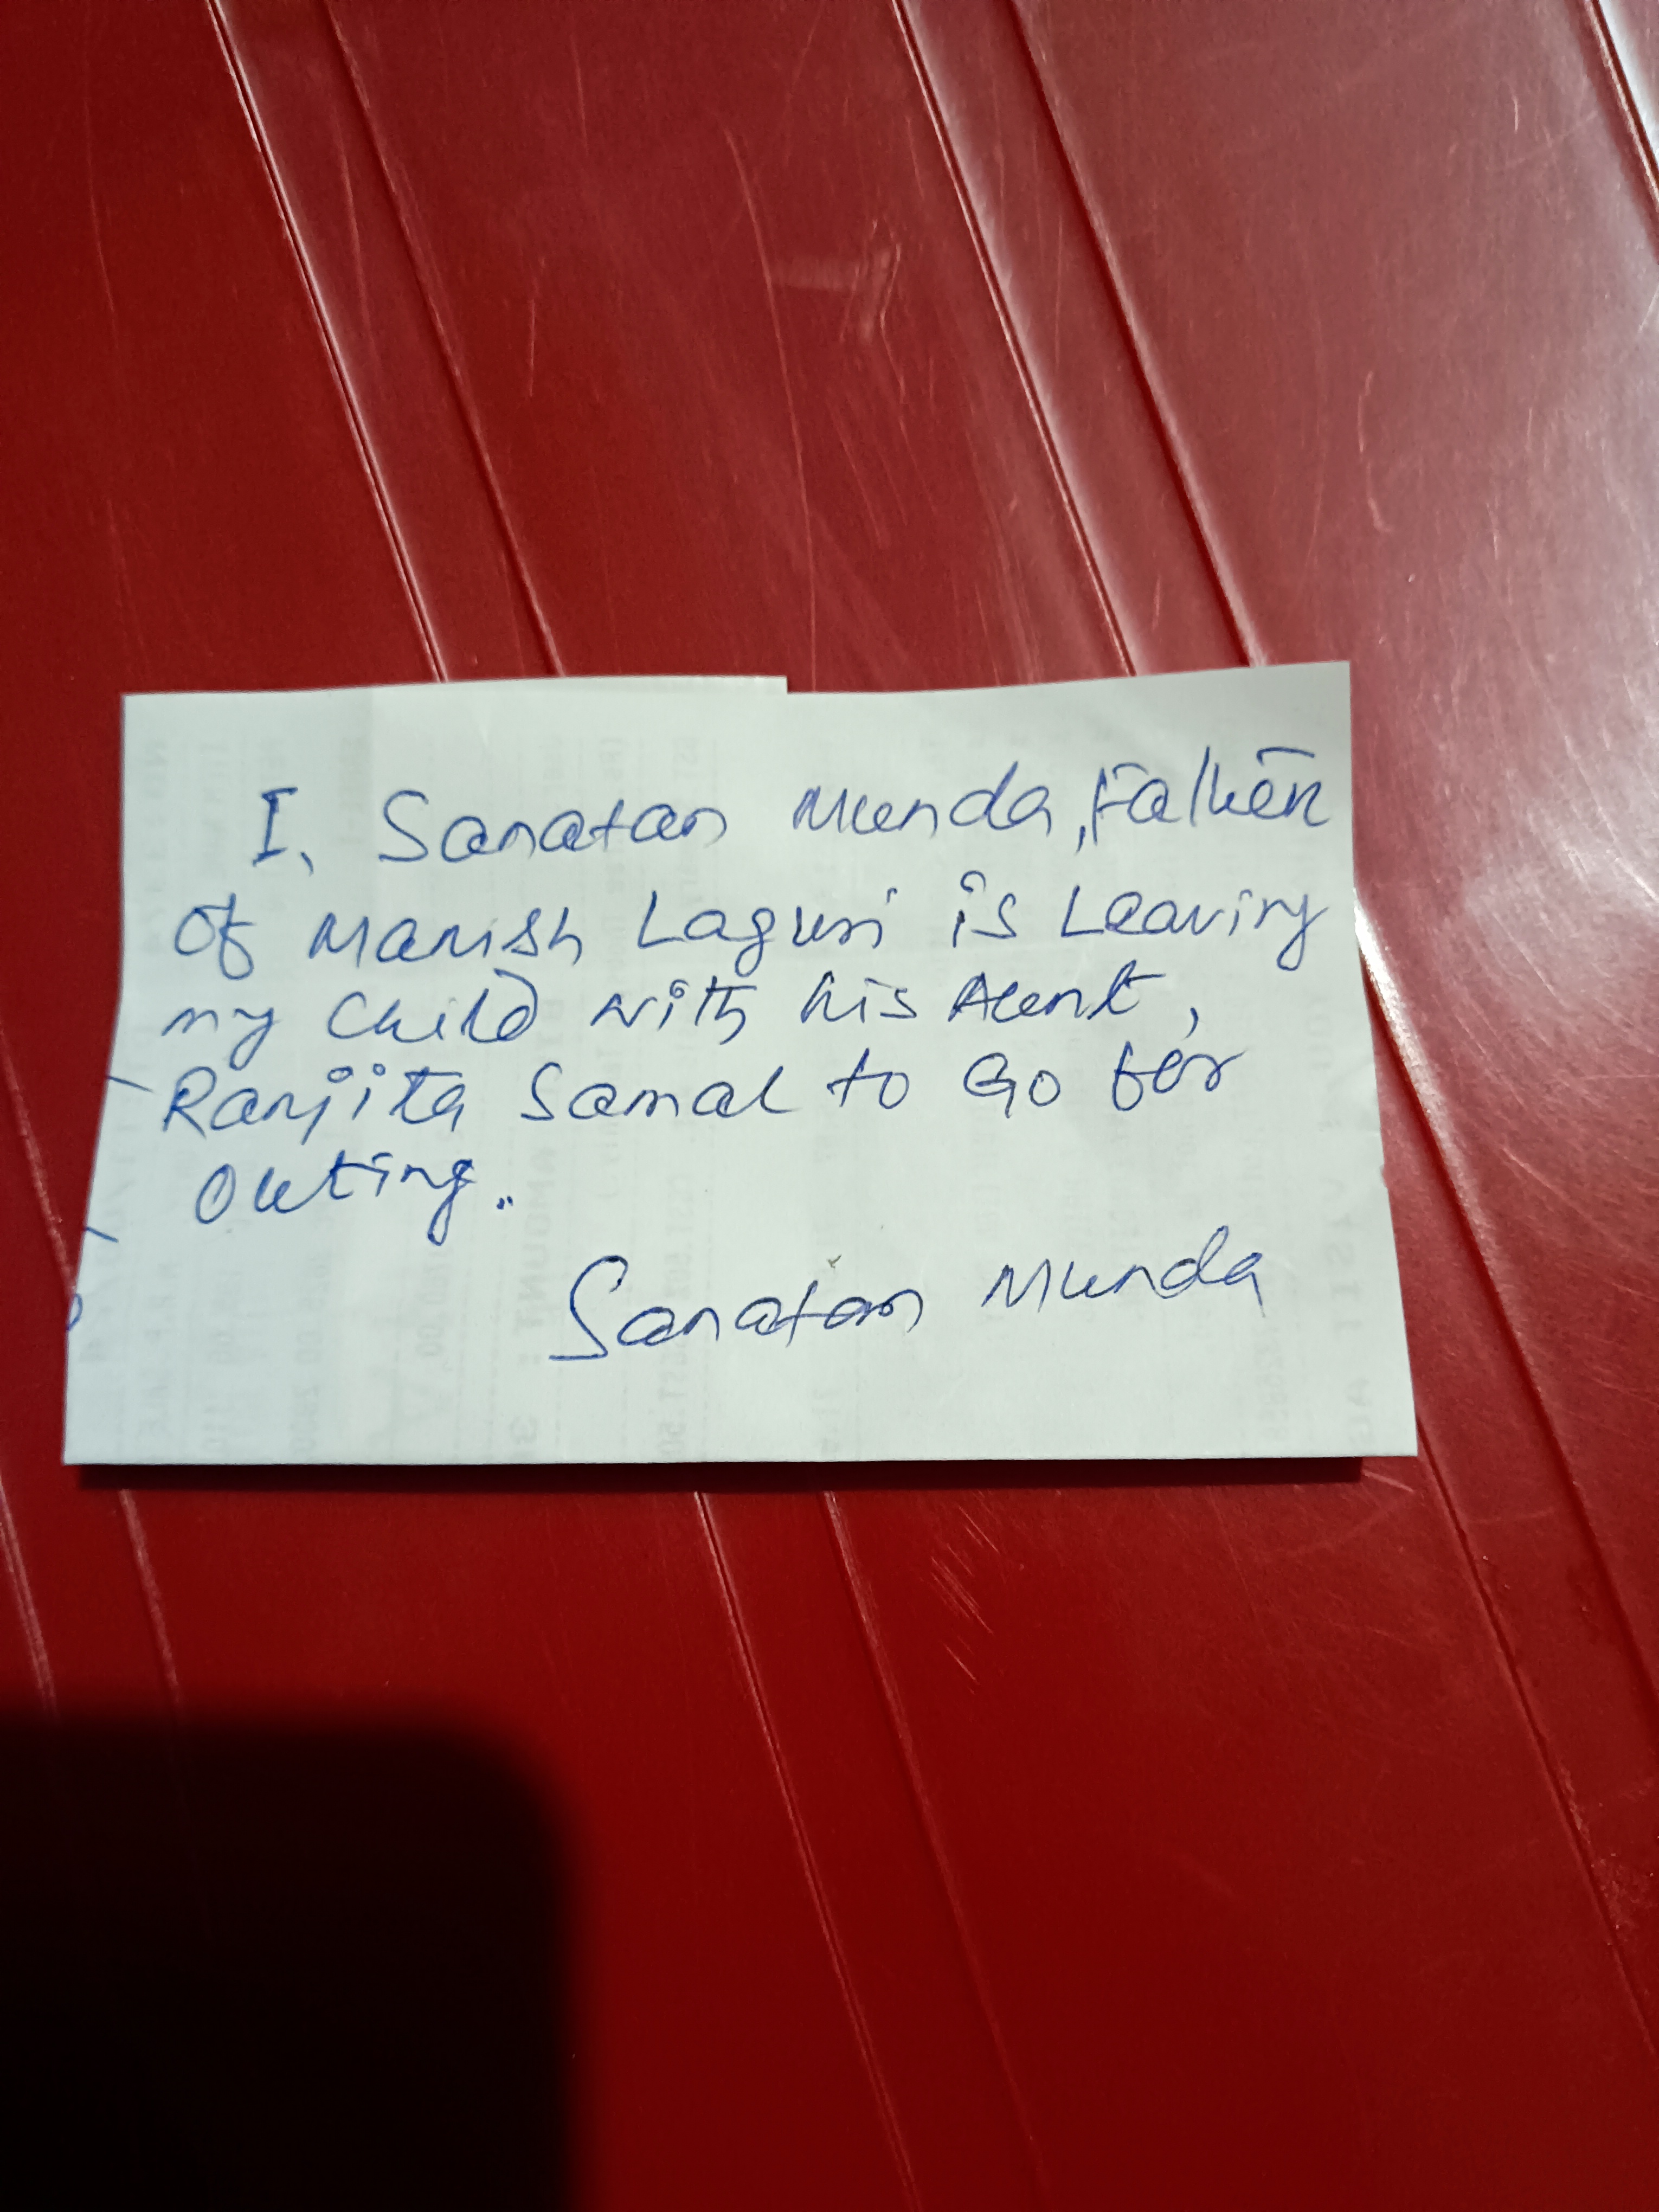 I, Sanatan Munda, Father
of Manish Laguri is Leaving
my Child with his Aunt,
Ranjita Samal to Go for
Outing.
Sanatan Munda